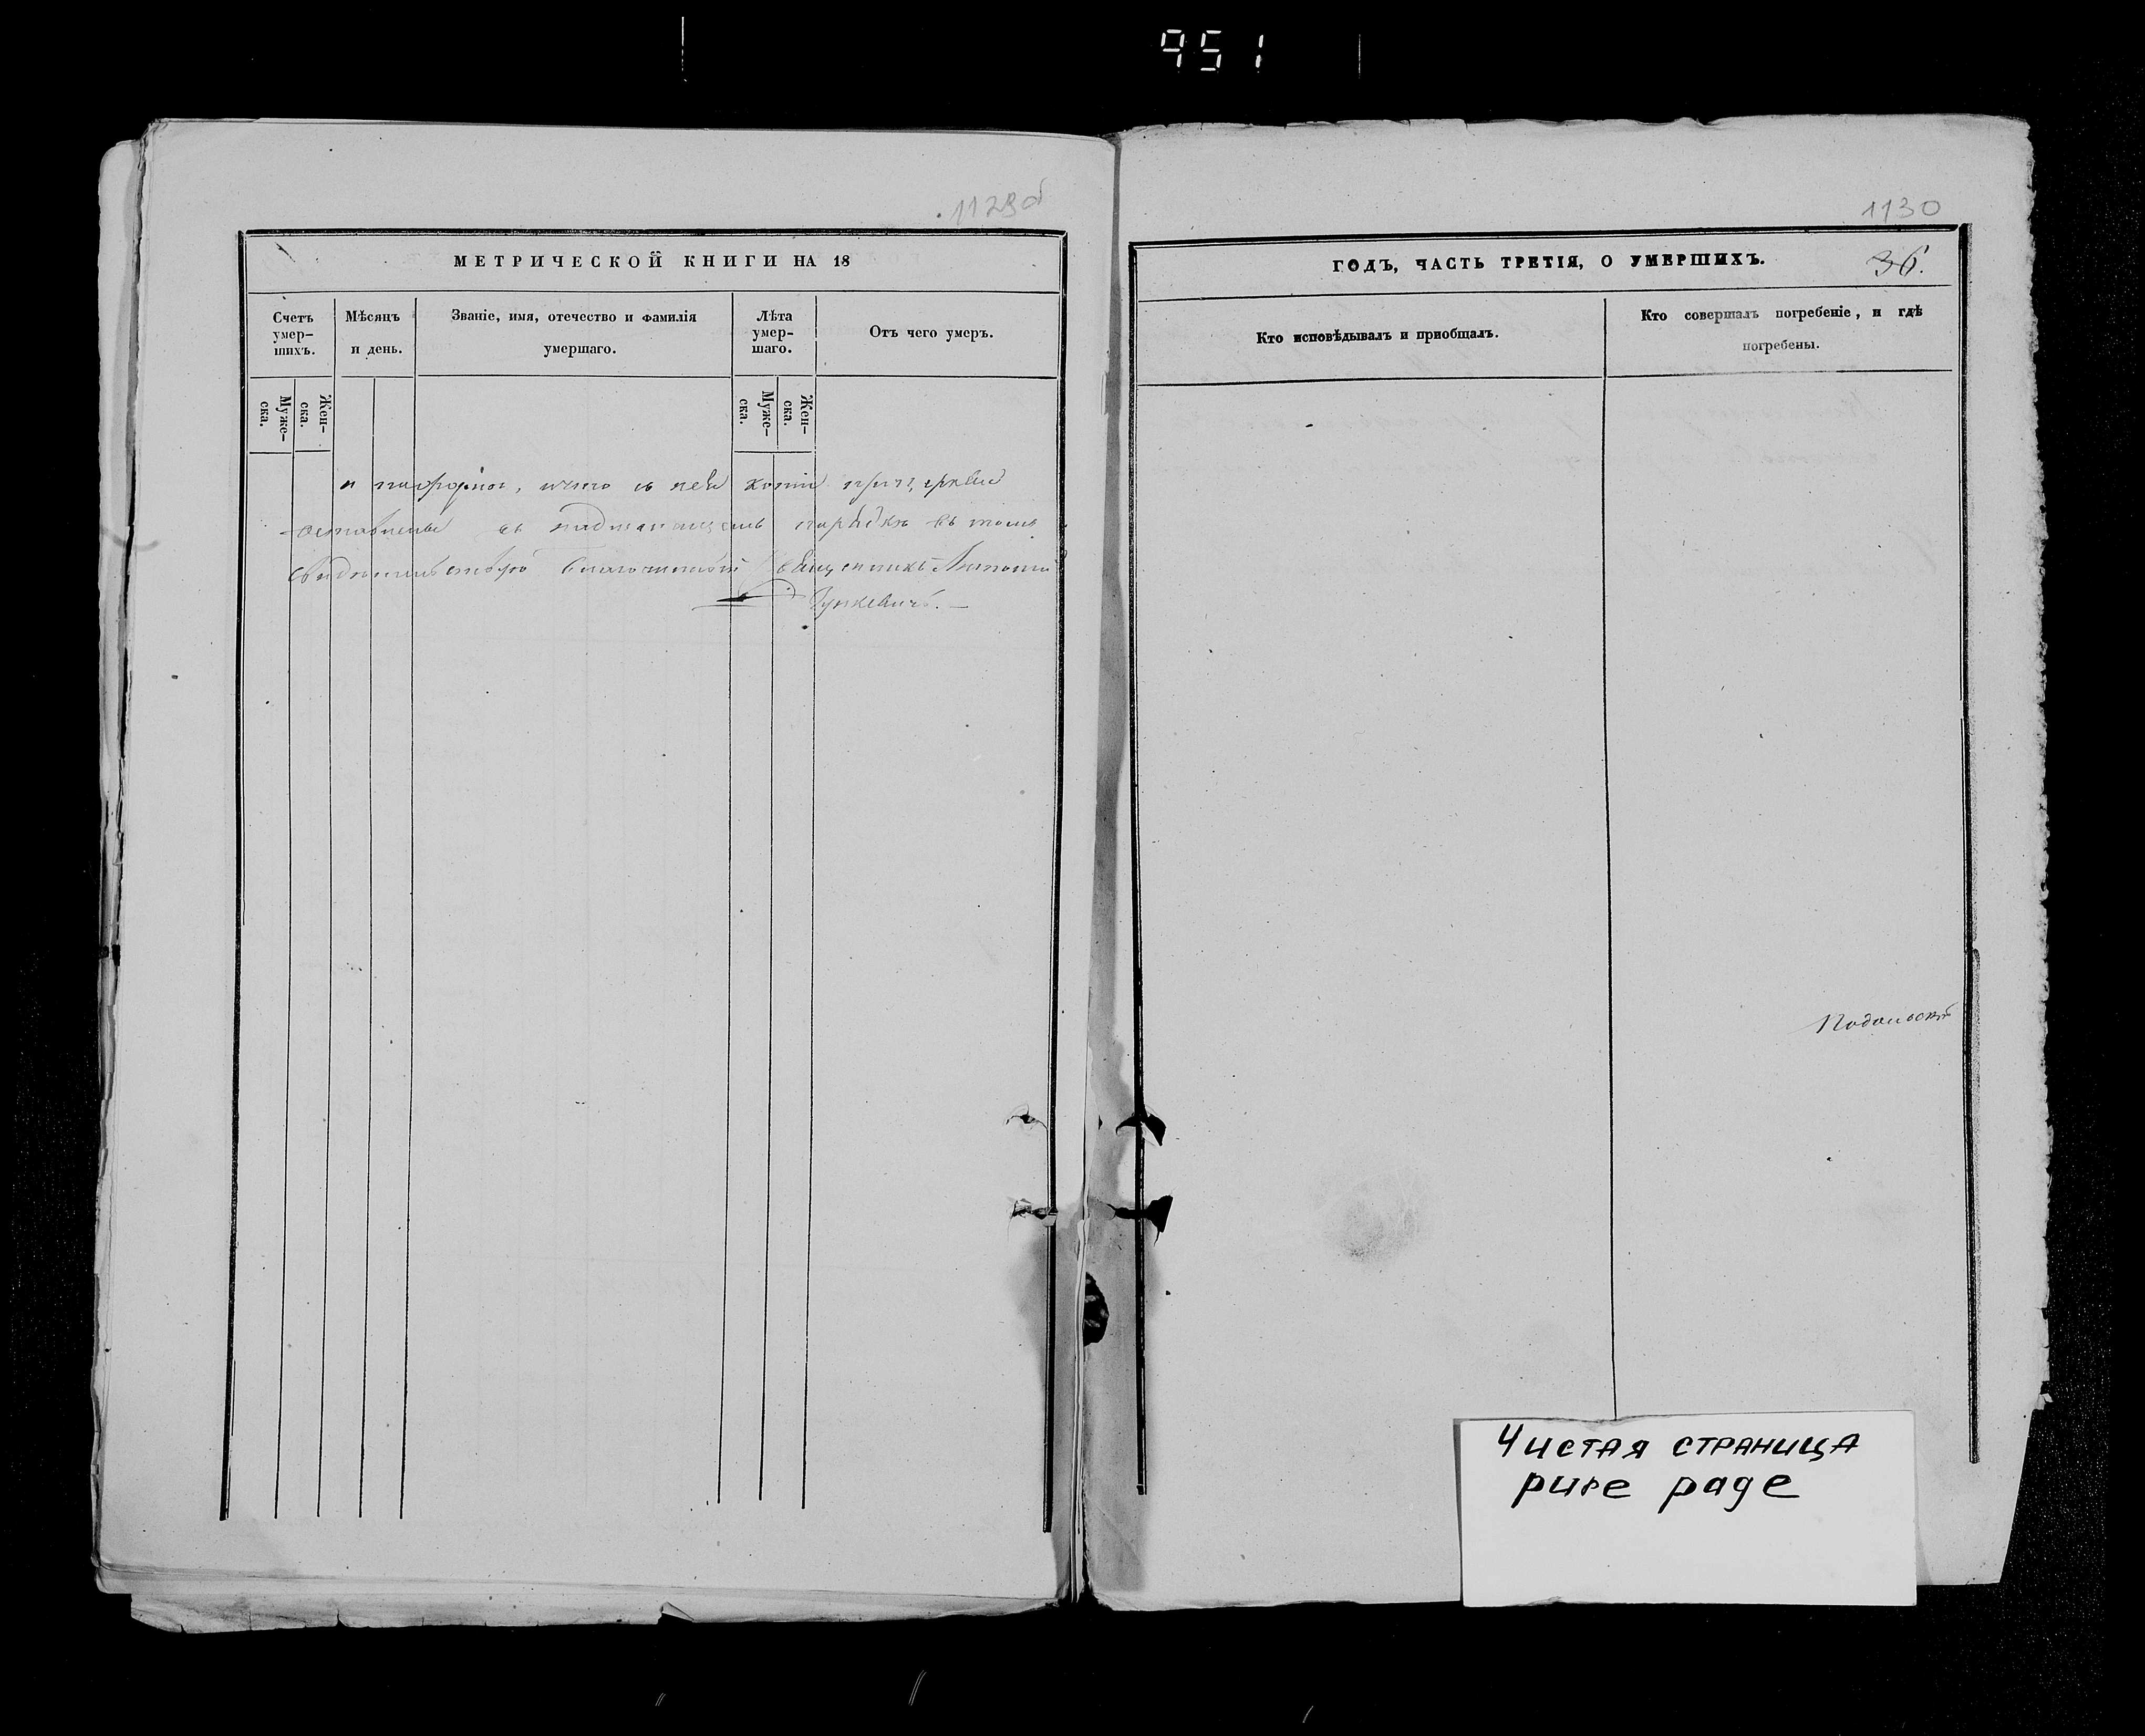 951
1129об
МЕТРИЧЕСКОЙ КНИГИ НА 18
Счетъ умер-шихъ.
Мѣсяцъ и день.
Званіе, имя, отечество и фамилія умершаго.
Лѣта умер-шаго.
Отъ чего умеръ.
Муже-ска.
Жен-ска.
Муже-ска.
Жен-ска.
и что съ ней копіи при церкви
оставлены въ надлежащемъ порядкѣ въ томъ
свидѣтельствую Благочинный Священникъ Антоній
1130
ГОДЪ, ЧАСТЬ ТРЕТІЯ, О УМЕРШИХЪ.
36.
Кто исповѣдывалъ и приобщалъ.
Кто совершалъ погребеніе, и гдѣ погребены.
Подольской
Чистая страница
pure page